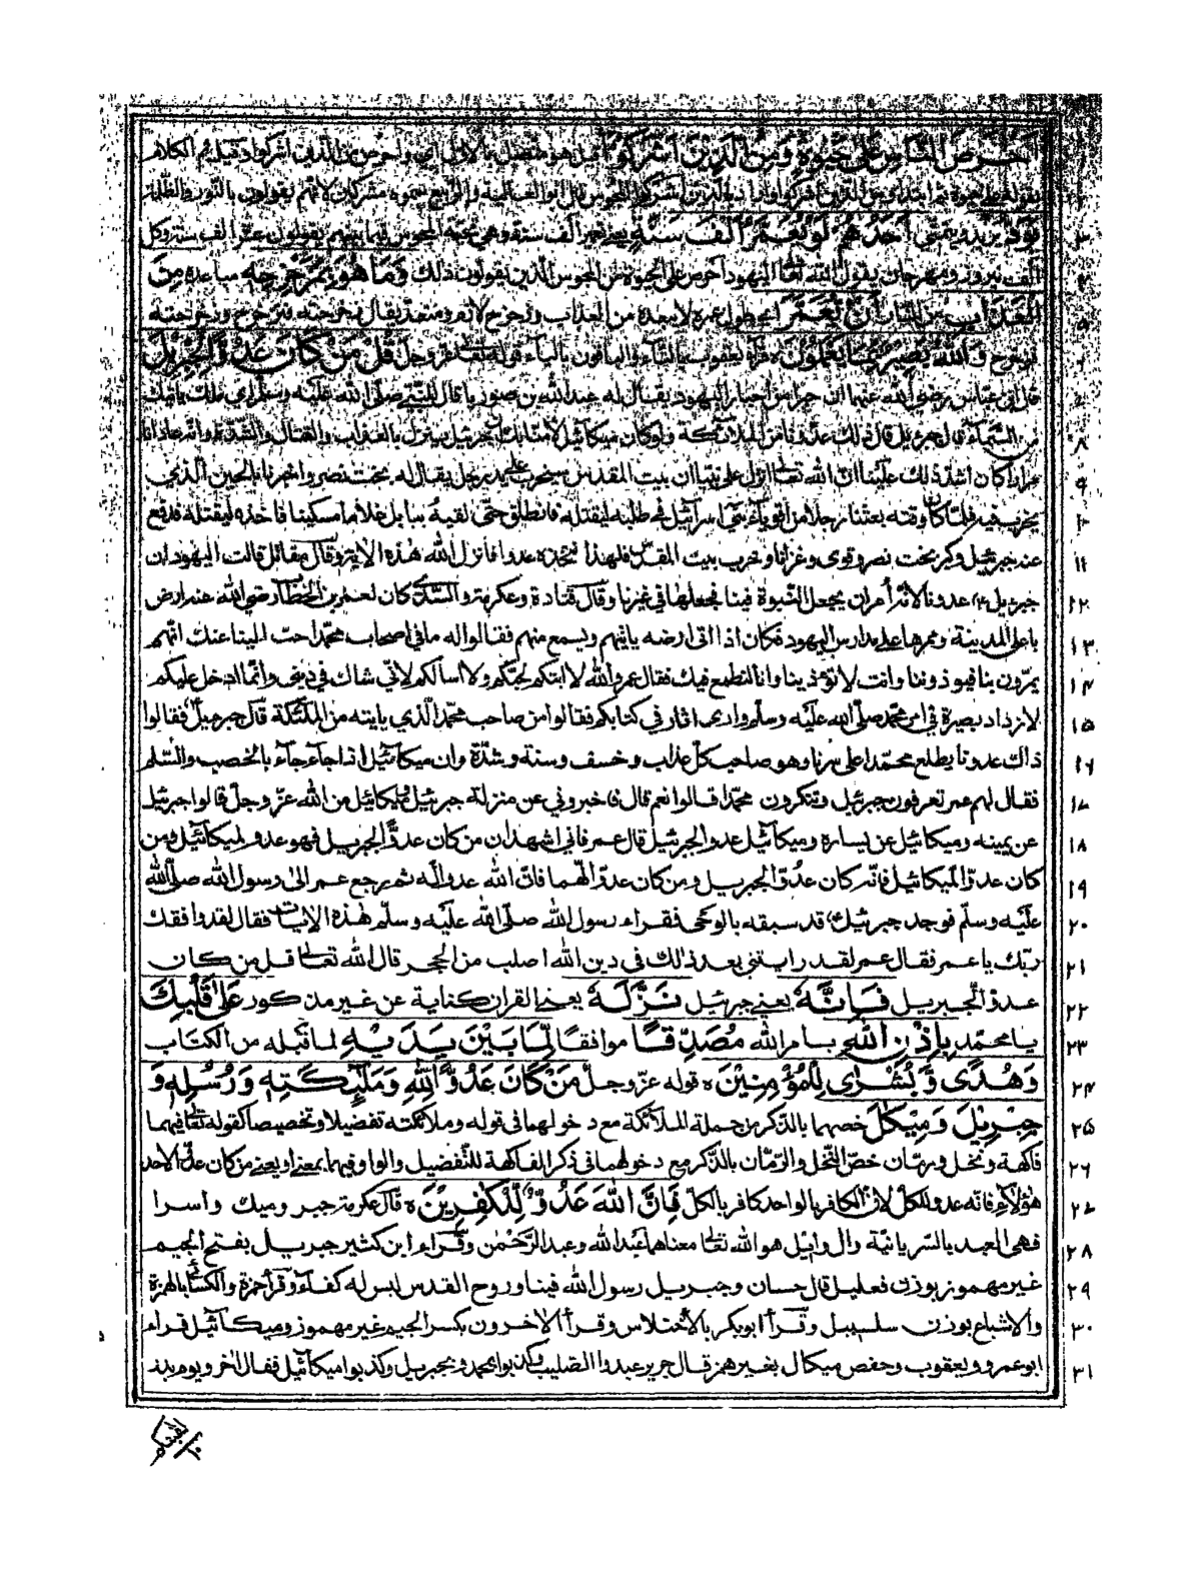 حرص الناس على حيوة ومن الذين اشركوا قيل هو متصل بالاول اي واحرص من الذين اشركوا وقيل تم الكلام
بقوله على حيوة ثم ابتدأ ومن الذين اشركوا واراد بالذين اشركوا المجوس قال ابو العالية والربيع سموا مشركين لانهم يقولون بالنور والظلمة
يود يريد ويتمنى احدهم لو يعمر الف سنة يعني تعمير الف سنة وهي تحية المجوس فيما بينهم يقولون عش الف سنة وكل
الف نيروز ومهرجان يقول الله تعالى اليهود احرص على الحيوة من المجوس الذين يقولون ذلك وما هو بمزحزحه مباعده من
العذاب من النار ان يعمر اي طول عمره لا يبعده من العذاب وزحزح لازم ومتعد يقال زحزحته فتزحزح وزحزحته
فزحزح والله بصير بما يعملون ه قرأ يعقوب بالتاء والباقون بالياء قوله تعالى عز وجل قل من كان عدوا لجبريل
قال ابن عباس رضي الله عنهما ان حبرا من احبار اليهود يقال له عبد الله بن صوريا قال للنبي صلى الله عليه وسلم اي ملك ياتيك
من السماء قال جبرئيل قال ذلك عدونا من الملائكة ولو كان ميكائيل لامنا بك ان جبرئيل ينزل بالعذاب والقتال والشدة وانه عادانا
مرارا كان اشد ذلك علينا ان الله تعالى انزل على نبينا ان بيت المقدس سيخرب على يد رجل يقال له بخت نصر واخبرنا بالحين الذي
يخرب فيه فلما كان وقته بعثنا رجلا من اقوياء بني اسرائيل في طلبه ليقتله فانطلق حتى لقيه ببابل غلاما مسكينا فاخذه ليقتله فدفع
عنه جبرئيل وكبر بخت نصر وقوى وغزانا وخرب بيت المقدس فلهذا نتخذه عدوا فانزل الله هذه الاية وقال مقاتل قالت اليهود ان
جبرئيل عدونا لانه أمر ان يجعل النبوة فينا فجعلها في غيرنا وقال قتادة وعكرمة والسدي كان لعمر بن الخطاب رضي الله عنه ارض
باعلى المدينة وممرها على مدارس اليهود فكان اذا اتى ارضه ياتيهم ويسمع منهم فقالوا له ما في اصحاب محمد احب الينا عنك انهم
يمرون بنا فيوذوننا وانت لا تؤذينا وانا لنطمع فيك فقال عمر والله لا اتيتكم لحبكم ولا اسألكم لاني شاك في ديني وانما ادخل عليكم
لازداد بصيرة في امر محمد صلى الله عليه وسلم وارى اثاره في كتابكم فقالوا من صاحب محمد الذي ياتيه من الملئكة قال جبرئيل فقالوا
ذاك عدونا يطلع محمدا على سرنا وهو صاحب كل عذاب وخسف وسنة وشدة وان ميكائيل اذا جاء جاء بالخصب والسلم
فقال لهم عمر تعرفون جبرئيل وتنكرون محمدا قالوا نعم قال فاخبروني عن منزلة جبرئيل وميكائيل من الله عز وجل قالوا جبرئيل
عن يمينه وميكائيل عن يساره وميكائيل عدو لجبرئيل قال عمر فاني اشهد ان من كان عدوا لجبريل فهو عدو لميكائيل ومن
كان عدوا لميكائيل فانه كان عدوا لجبريل ومن كان عدوا لهما فان الله عدو له ثم رجع عمر الى رسول الله صلى الله
عليه وسلم فوجد جبرئيل قد سبقه بالوحى فقراء رسول الله صلى الله عليه وسلم هذه الايات فقال لقد وافقك
ربك يا عمر فقال عمر لقد رايتني بعد ذلك في دين الله اصلب من الحجر قال الله تعالى قل من كان
عدوا لجبريل فانه يعني جبرئيل نزله يعني القران كناية عن غير مذكور على قلبك
يا محمد باذن الله بامر الله مصدقا موافقا لما بين يديه لما قبله من الكتاب
وهدى وبشرى للمؤمنين ه قوله عز وجل من كان عدوا لله وملئكته ورسله و
جبريل وميكل خصهما بالذكر من جملة الملائكة مع دخولهما في قوله وملائكته تفضيلا وتخصيصا كقوله تعالى فيهما
فاكهة ونخل ورمان خص النخل والرمان بالذكر مع دخولهما في ذكر الفاكهة للتفضيل والواو فيهما بمعنى او يعني من كان عدوا لاحد
هؤلاء فانه عدو للكل لان الكافر بالواحد كافر بالكل فان الله عدو للكفرين ه قال عكرمة جبر وميك واسرا
فهى العبد بالسريانية وال وايل هو الله تعالى معناهما عبد الله وعبد الرحمن وقراء ابن كثير جبريل بفتح الجيم
غير مهموز بوزن فعليل قال حسان وجبريل رسول الله فينا وروح القدس ليس له كفاء وقرأ حمزة والكسائي بالهمزة
والاشباع بوزن سلسبيل وقرأ ابو بكر بالاختلاس وقرأ الاخرون بكسر الجيم غير مهموز وميكائيل قراء
ابو عمرو ويعقوب وحفص ميكال بغير همز قال جرير عبدوا الصليب وكذبوا بمحمد وبجبريل وكذبوا ميكائيل فقال الاخر ويوم بدر